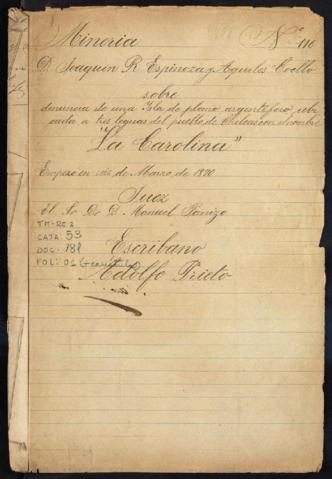 Mineria Nº 110
D. Joaquin R. Espinoza y Aquiles Coello
sobre
denuncia de una de plomo argentifero, ubi
cada a tres leguas del pueblo de con el nombre
"La Carolina"
Empieza en de Marzo de 1890
Juez
El Sr Dr D. Manuel
TM-RC 2
CAJA: 53
DOC: 181
FOL: 06
Escribano
Adolfo Prieto